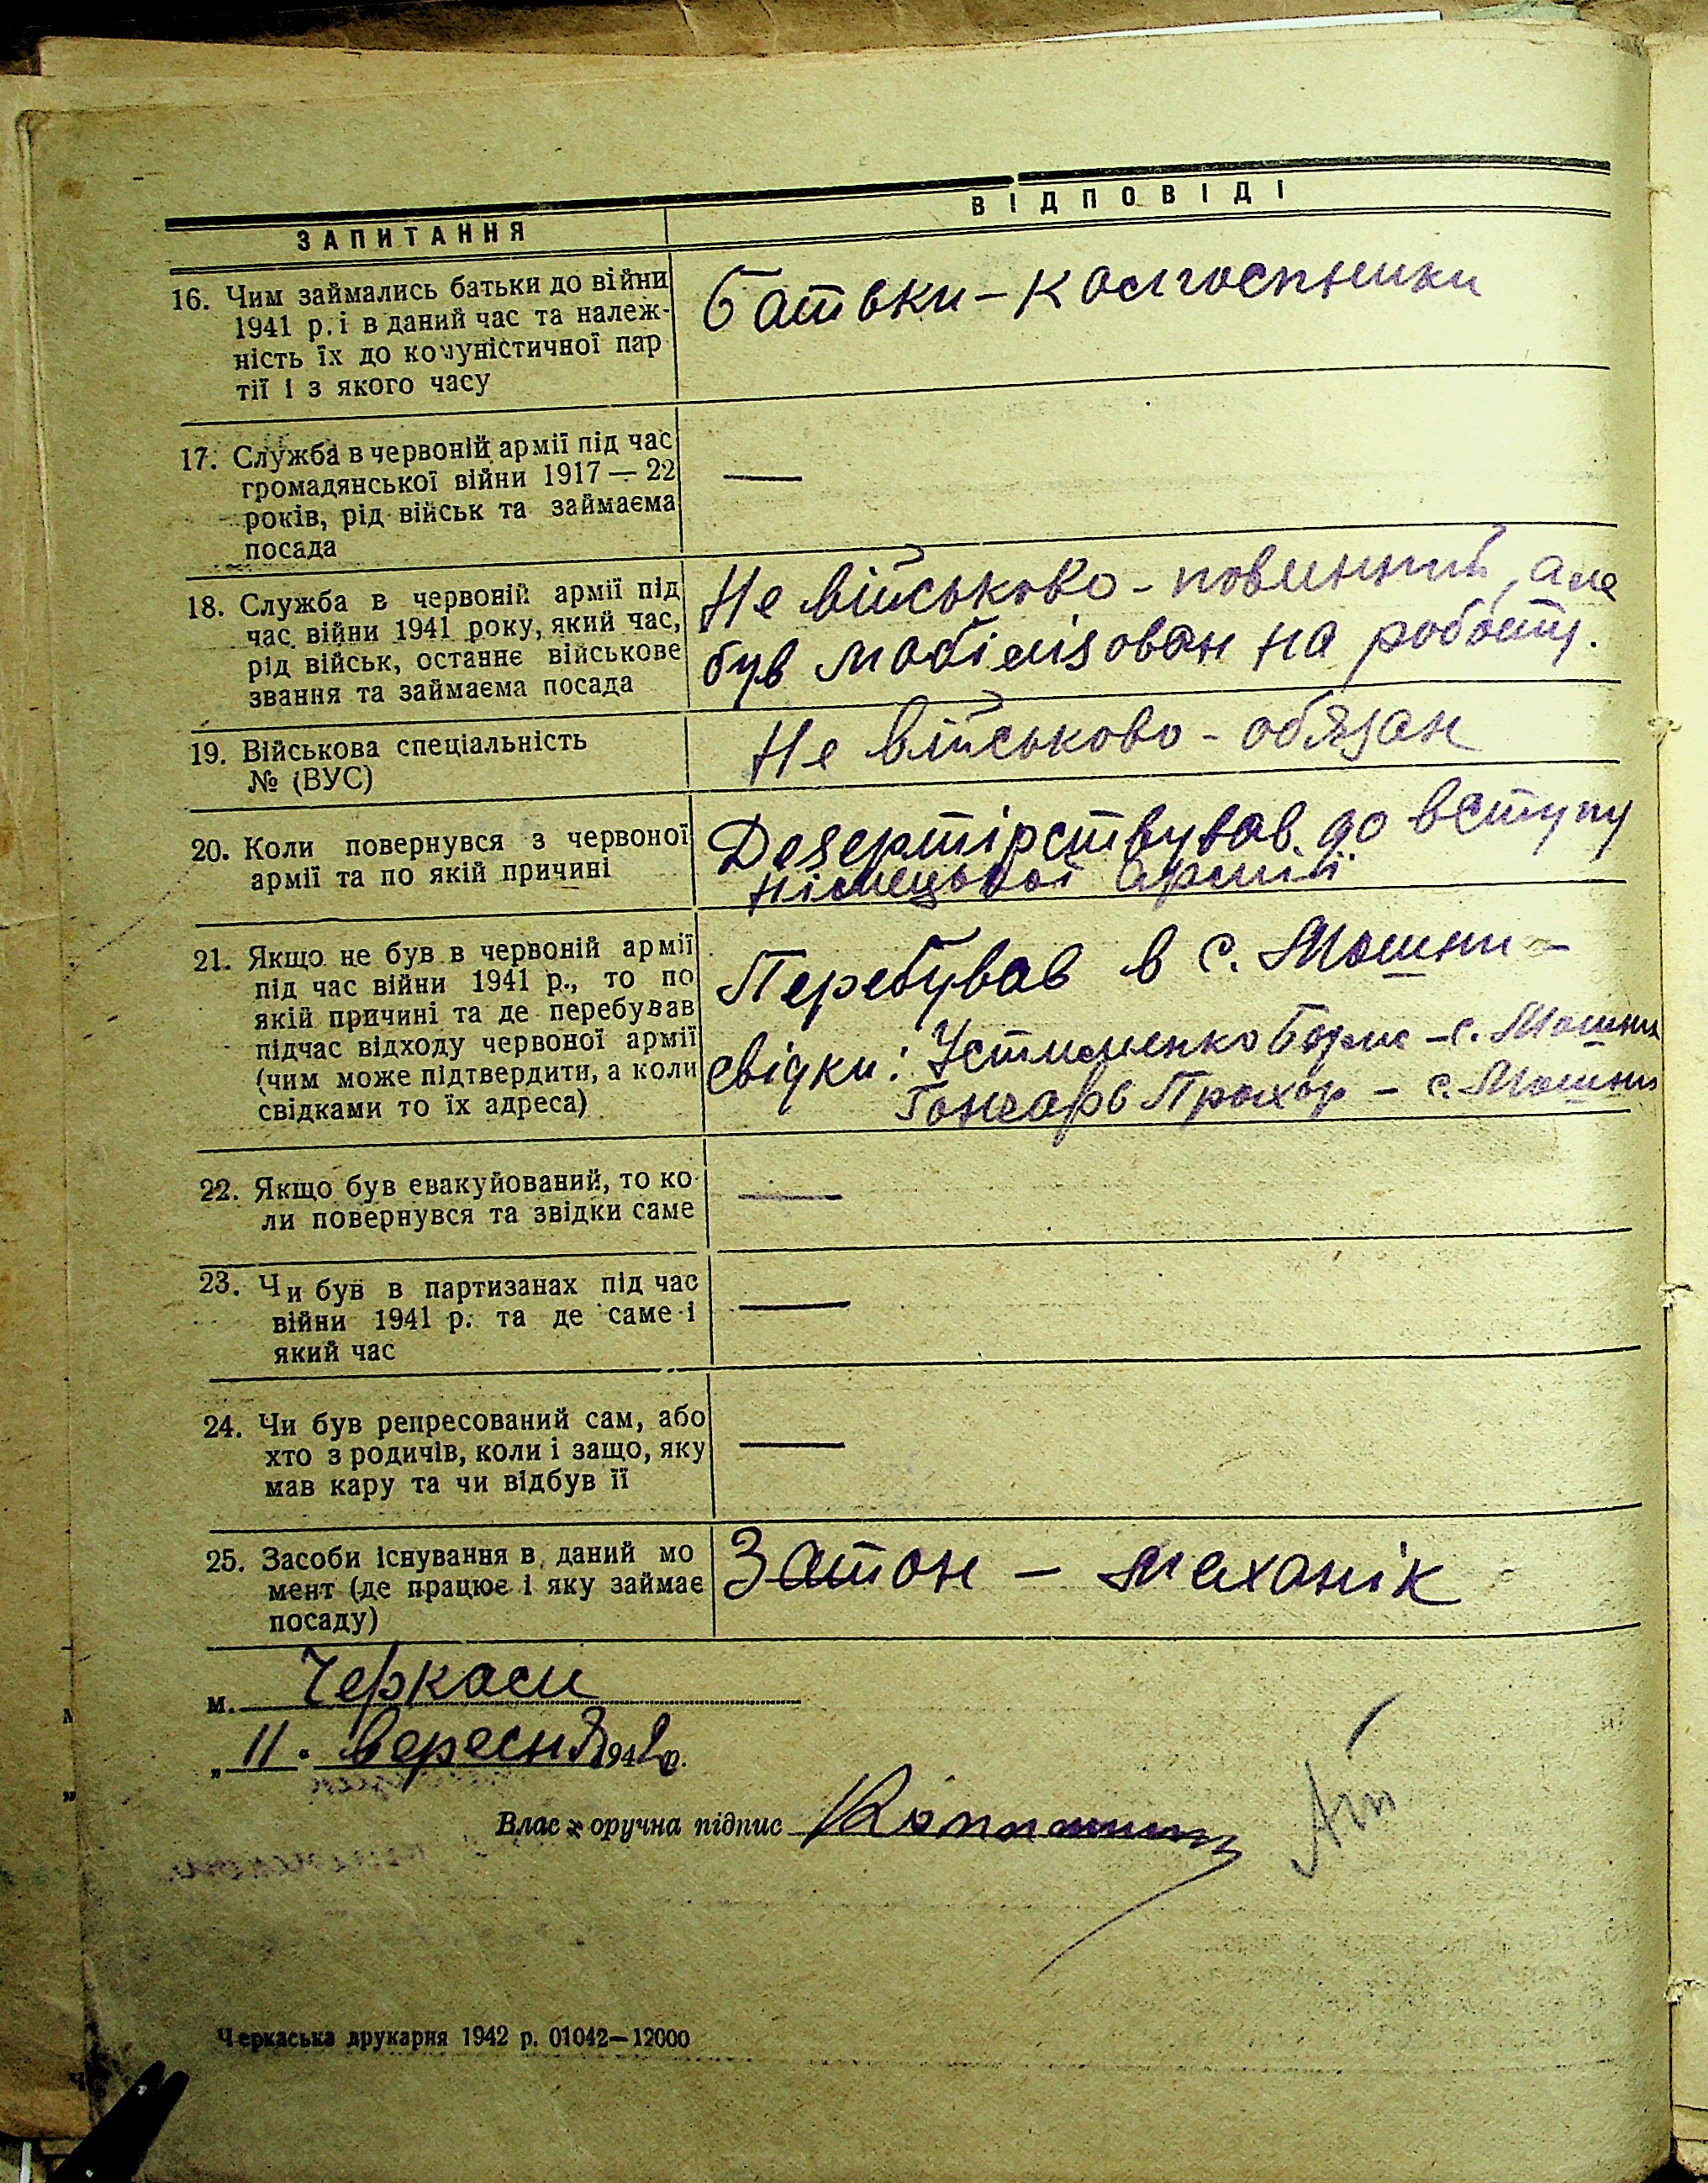 ЗАПИТАННЯ
ВІДПОВІДІ
16. Чим займались батьки до війни
1941 р. і в даний час та належ-
ність їх до комуністичної пар
тії і з якого часу
батьки – колгоспники
17. Служба в червоній армії під час
громадянської війни 1917 — 22
років, рід військ та займаєма
посада
—
18. Служба в червоній армії під
час війни 1941 року, який час,
рід військ, останнє військове
звання та займаєма посада
Не військово-повинний, але
був мобілізован на роботу.
19. Військова спеціальність
№ (ВУС)
Не військово-обязан
20. Коли повернувся з червоної
армії та по якій причині
Дезертірствував до вступу
німецької армії
21. Якщо не був в червоній армії
під час війни 1941 р., то по
якій причині та де перебував
підчас відходу червоної армії
(чим може підтвердити, а коли
свідками то їх адреса)
Перебував в с. Мошни –
свідки: Устименко Борис – с. Мошни
Гончарь Прохор – с. Мошни
22. Якщо був евакуйований, то ко-
ли повернувся та звідки саме
—
23. Чи був в партизанах під час
війни 1941 р. та де саме і
який час
—
24. Чи був репресований сам, або
хто з родичів, коли і защо, яку
мав кару та чи відбув її
—
25. Засоби існування в даний мо
мент (де працює і яку займає
посаду)
Затон – механік
м. Черкаси
„ 11. вересня 1942 р.
Влас оручна підпис
Черкаська друкарня 1942 р. 01042—12000